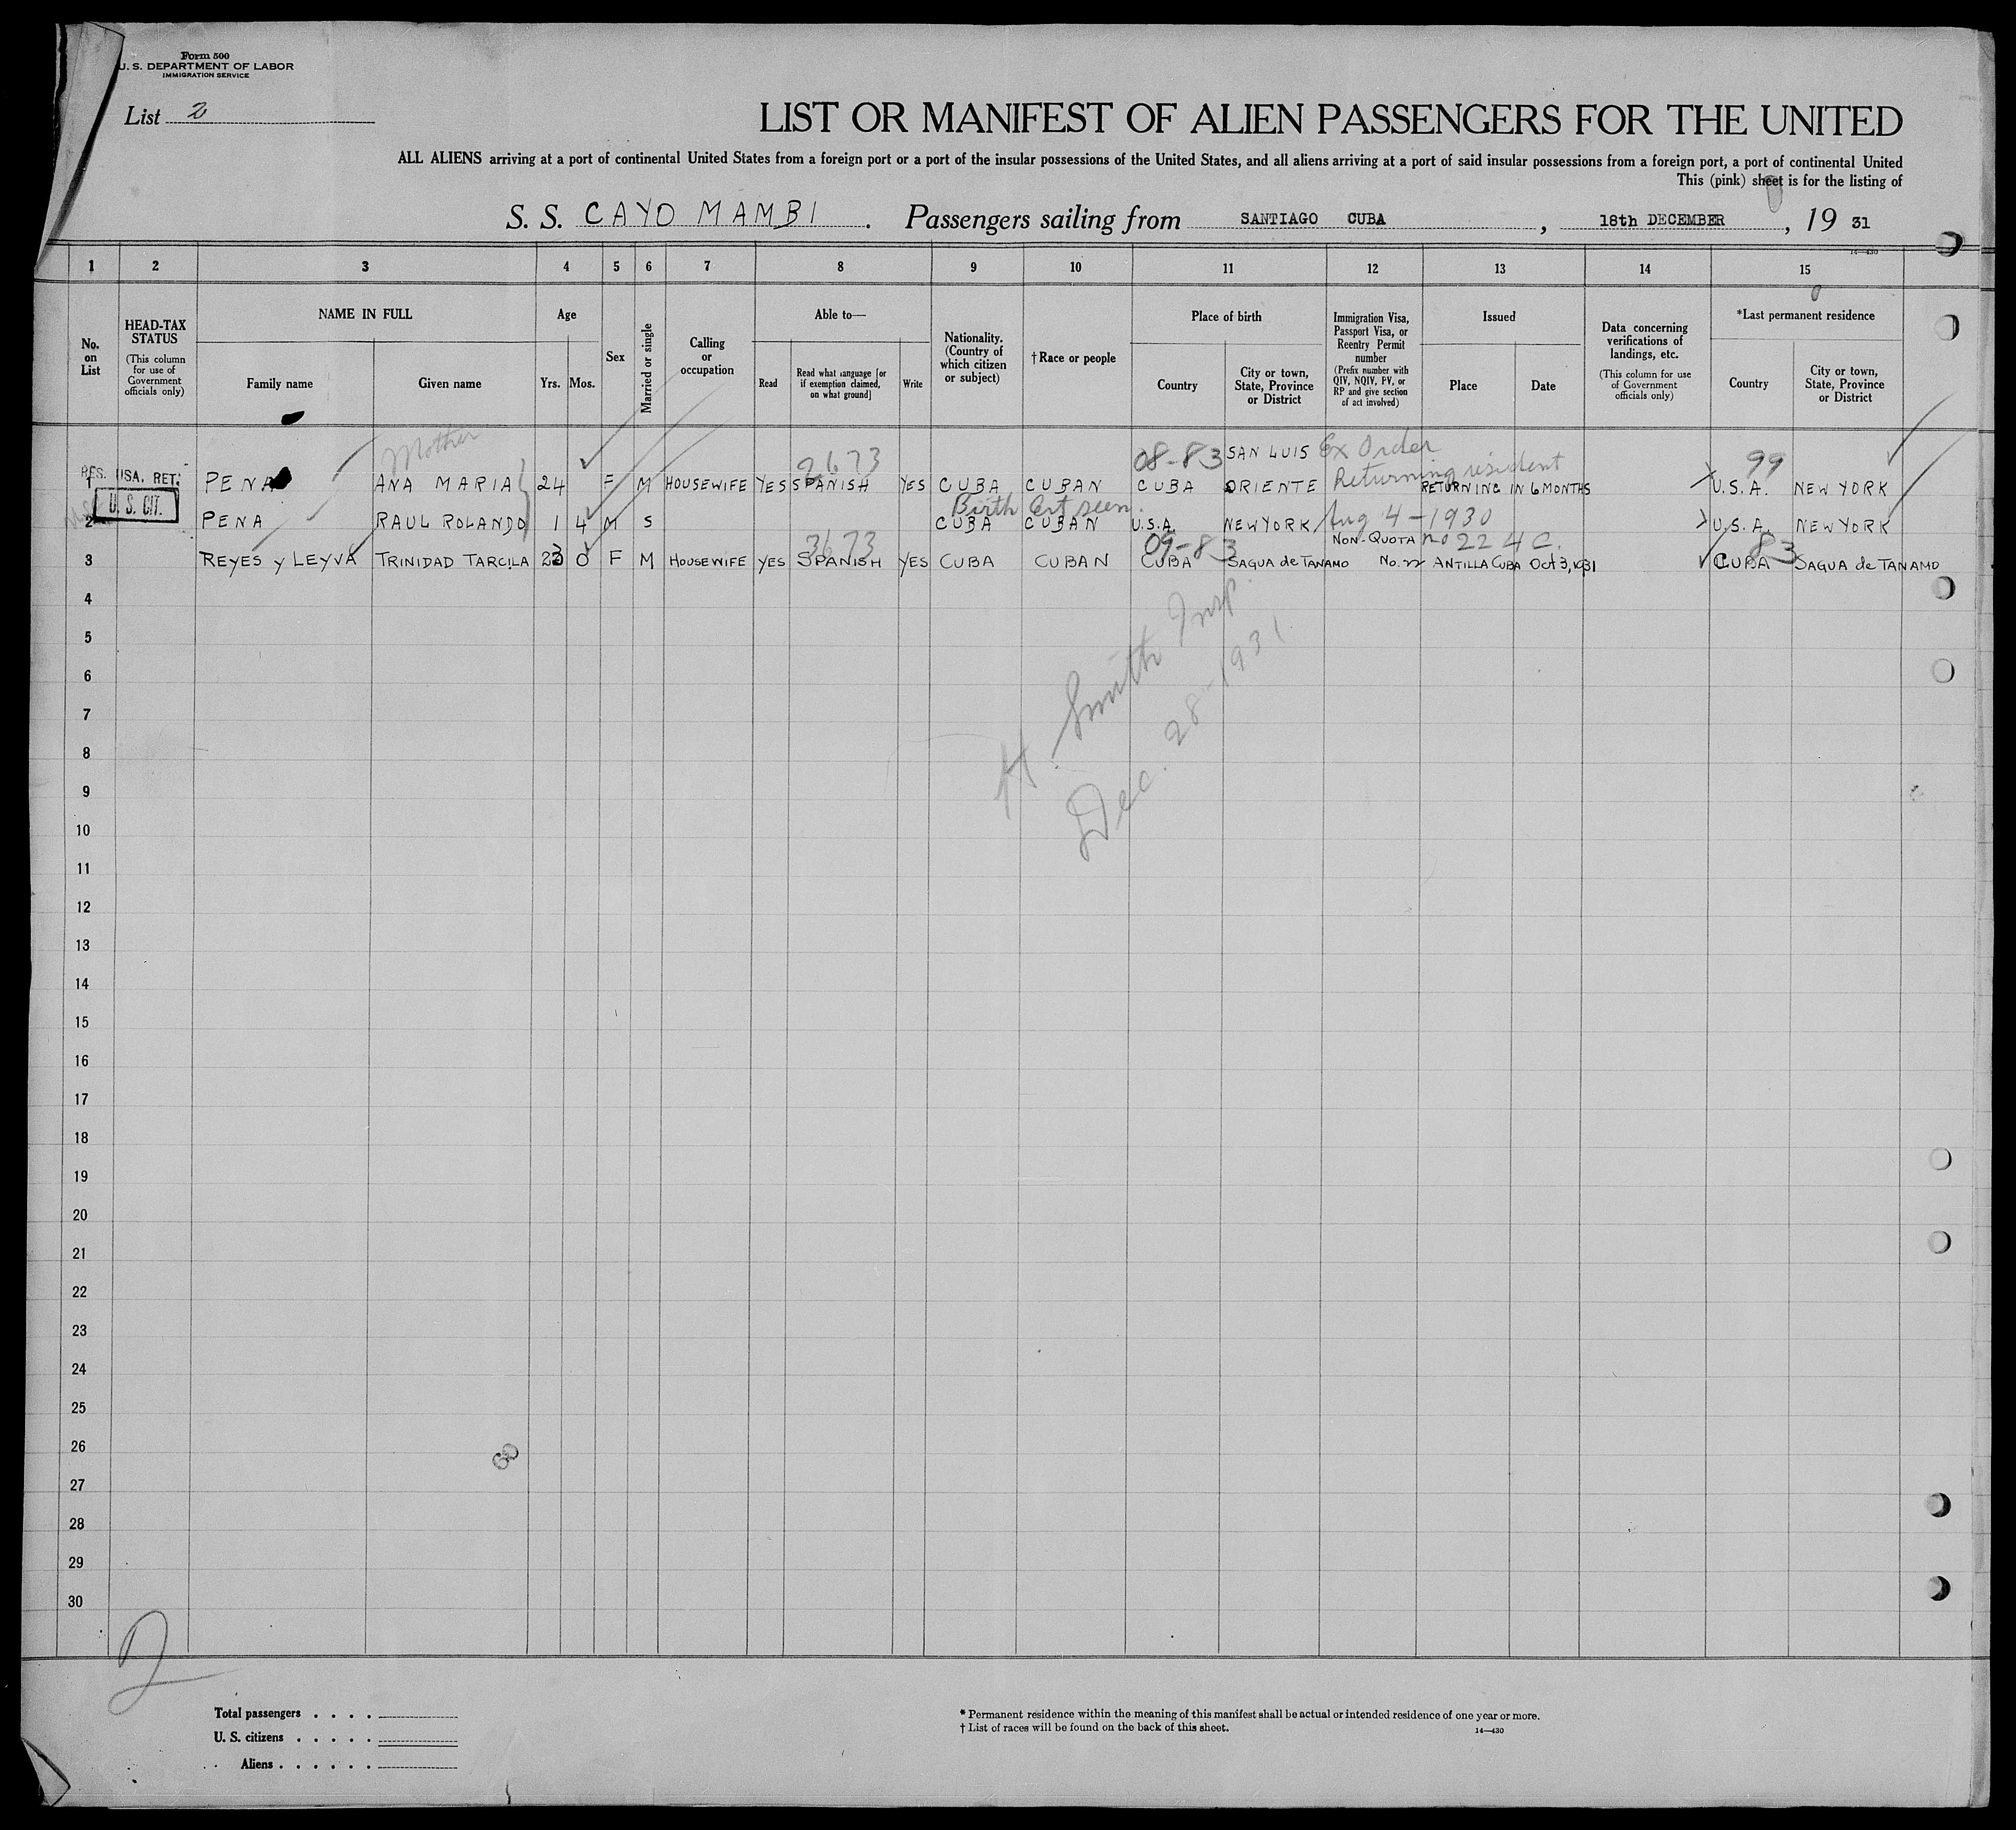 Form 500
U. S. DEPARTMENT OF LABOR
IMMIGRATION SERVICE
List 2
LIST OR MANIFEST OF ALIEN PASSENGERS FOR THE UNITED
ALL ALIENS arriving at a port of continental United States from a foreign port or a port of the insular possessions of the United States, and all aliens arriving at a port of said insular possessions from a foreign port, a port of continental United
This (pink) sheet is for the listing of
S. S. CAYO MAMBI. Passengers sailing from SANTIAGO CUBA, 18th DECEMBER, 19 31
14—430
1 2 3 4 5 6 7 8 9 10 11 12 13 14 15
No. on List
HEAD-TAX STATUS
(This column for use of Government officials only)
NAME IN FULL
Family name
Given name
Age
Yrs.
Mos.
Sex
Married or single
Calling or occupation
Able to—
Read
Read what language [or if exemption claimed, on what ground]
Write
Nationality. (Country of which citizen or subject)
†Race or people
Place of birth
Country
City or town, State, Province or District
Immigration Visa, Passport Visa, or Reentry Permit number
(Prefix number with QIV, NQIV, PV, or RP and give section of act involved)
Issued
Place
Date
Data concerning verifications of landings, etc.
(This column for use of Government officials only)
*Last permanent residence
Country
City or town, State, Province or District
Mother 2673 08-83 SAN LUIS Ex Order 99
RES. USA. RET. Returning resident
1 PENA ANA MARIA 24 F M HOUSEWIFE YES SPANISH YES CUBA CUBAN CUBA ORIENTE RETURNING IN 6 MONTHS U.S.A. NEW YORK
U. S. CIT. Birth Cert seen.
2 PENA RAUL ROLANDO 1 4 M S CUBA CUBAN U.S.A. NEW YORK Aug 4-1930 U.S.A. NEW YORK
3673 09-83 NON-QUOTA no 224 C. 83
3 REYES y LEYVA TRINIDAD TARCILA 23 0 F M HOUSEWIFE YES SPANISH YES CUBA CUBAN CUBA SAGUA de TANAMO No. ANTILLA CUBA Oct 3, 1931 CUBA SAGUA de TANAMO
4
5
6
7
8
9
10
11
12
13
14
15
16
17
18
19
20
21
22
23
24
25
26
27
28
29
30
H. Smith Insp.
Dec. 28-1931
60
2
Total passengers . . . .
U. S. citizens . . . . .
Aliens . . . . . .
* Permanent residence within the meaning of this manifest shall be actual or intended residence of one year or more.
† List of races will be found on the back of this sheet.
14—430